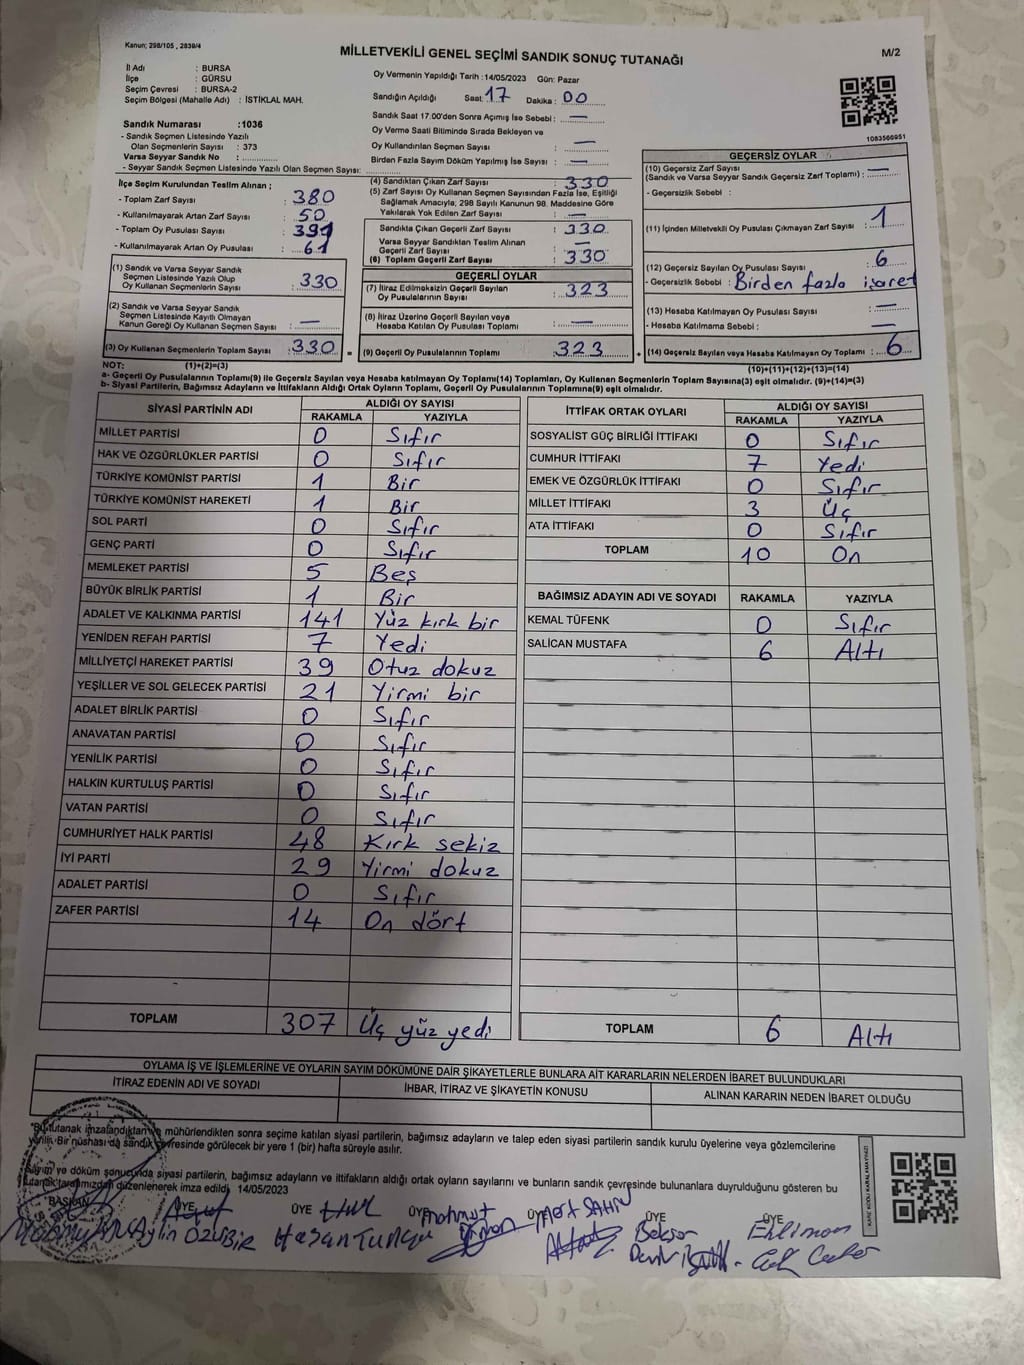 Kanun; 298/105 , 2839/4
MİLLETVEKİLİ GENEL SEÇİMİ SANDIK SONUÇ TUTANAĞI
M/2
İl Adı : BURSA
İlçe : GÜRSU
Seçim Çevresi : BURSA-2
Seçim Bölgesi (Mahalle Adı) : İSTİKLAL MAH.
Oy Vermenin Yapıldığı Tarih : 14/05/2023 Gün: Pazar
Sandığın Açıldığı Saat: 17 Dakika : 00
Sandık Saat 17.00'den Sonra Açımış İse Sebebi : —
Oy Verme Saati Bitiminde Sırada Bekleyen ve
Oy Kullandırılan Seçmen Sayısı : —
Birden Fazla Sayım Döküm Yapılmış İse Sayısı : —
1083566951
Sandık Numarası :1036
- Sandık Seçmen Listesinde Yazılı
Olan Seçmenlerin Sayısı : 373
Varsa Seyyar Sandık No : ..............
- Seyyar Sandık Seçmen Listesinde Yazılı Olan Seçmen Sayısı: ..............
İlçe Seçim Kurulundan Teslim Alınan ;
- Toplam Zarf Sayısı : 380
- Kullanılmayarak Artan Zarf Sayısı : 50
- Toplam Oy Pusulası Sayısı : 391
- Kullanılmayarak Artan Oy Pusulası : 61
(1) Sandık ve Varsa Seyyar Sandık
Seçmen Listesinde Yazılı Olup
Oy Kullanan Seçmenlerin Sayısı : 330
(2) Sandık ve Varsa Seyyar Sandık
Seçmen Listesinde Kayıtlı Olmayan
Kanun Gereği Oy Kullanan Seçmen Sayısı : —
(3) Oy Kullanan Seçmenlerin Toplam Sayısı : 330 =
(4) Sandıktan Çıkan Zarf Sayısı : 330
(5) Zarf Sayısı Oy Kullanan Seçmen Sayısından Fazla İse, Eşitliği
Sağlamak Amacıyla; 298 Sayılı Kanunun 98. Maddesine Göre
Yakılarak Yok Edilen Zarf Sayısı : —
Sandıkta Çıkan Geçerli Zarf Sayısı : 330
Varsa Seyyar Sandıktan Teslim Alınan
Geçerli Zarf Sayısı : —
(6) Toplam Geçerli Zarf Sayısı : 330
GEÇERLİ OYLAR
(7) İtiraz Edilmeksizin Geçerli Sayılan
Oy Pusulalarının Sayısı : 323
(8) İtiraz Üzerine Geçerli Sayılan veya
Hesaba Katılan Oy Pusulası Toplamı : —
(9) Geçerli Oy Pusulalarının Toplamı : 323 +
GEÇERSİZ OYLAR
(10) Geçersiz Zarf Sayısı
(Sandık ve Varsa Seyyar Sandık Geçersiz Zarf Toplamı) : —
- Geçersizlik Sebebi :
(11) İçinden Milletvekili Oy Pusulası Çıkmayan Zarf Sayısı : 1
(12) Geçersiz Sayılan Oy Pusulası Sayısı : 6
- Geçersizlik Sebebi : Birden fazla işaret
(13) Hesaba Katılmayan Oy Pusulası Sayısı : —
- Hesaba Katılmama Sebebi : —
(14) Geçersiz Sayılan veya Hesaba Katılmayan Oy Toplamı : 6
NOT: (1)+(2)=(3) (10)+(11)+(12)+(13)=(14)
a- Geçerli Oy Pusulalarının Toplamı(9) ile Geçersiz Sayılan veya Hesaba katılmayan Oy Toplamı(14) Toplamları, Oy Kullanan Seçmenlerin Toplam Sayısına(3) eşit olmalıdır. (9)+(14)=(3)
b- Siyasi Partilerin, Bağımsız Adayların ve İttifakların Aldığı Ortak Oyların Toplamı, Geçerli Oy Pusulalarının Toplamına(9) eşit olmalıdır.
SİYASİ PARTİNİN ADI ALDIĞI OY SAYISI
RAKAMLA YAZIYLA
MİLLET PARTİSİ 0 Sıfır
HAK VE ÖZGÜRLÜKLER PARTİSİ 0 Sıfır
TÜRKİYE KOMÜNİST PARTİSİ 1 Bir
TÜRKİYE KOMÜNİST HAREKETİ 1 Bir
SOL PARTİ 0 Sıfır
GENÇ PARTİ 0 Sıfır
MEMLEKET PARTİSİ 5 Beş
BÜYÜK BİRLİK PARTİSİ 1 Bir
ADALET VE KALKINMA PARTİSİ 141 Yüz kırk bir
YENİDEN REFAH PARTİSİ 7 Yedi
MİLLİYETÇİ HAREKET PARTİSİ 39 Otuz dokuz
YEŞİLLER VE SOL GELECEK PARTİSİ 21 Yirmi bir
ADALET BİRLİK PARTİSİ 0 Sıfır
ANAVATAN PARTİSİ 0 Sıfır
YENİLİK PARTİSİ 0 Sıfır
HALKIN KURTULUŞ PARTİSİ 0 Sıfır
VATAN PARTİSİ 0 Sıfır
CUMHURİYET HALK PARTİSİ 48 Kırk sekiz
İYİ PARTİ 29 Yirmi dokuz
ADALET PARTİSİ 0 Sıfır
ZAFER PARTİSİ 14 On dört
TOPLAM 307 Üç yüz yedi
İTTİFAK ORTAK OYLARI ALDIĞI OY SAYISI
RAKAMLA YAZIYLA
SOSYALİST GÜÇ BİRLİĞİ İTTİFAKI 0 Sıfır
CUMHUR İTTİFAKI 7 Yedi
EMEK VE ÖZGÜRLÜK İTTİFAKI 0 Sıfır
MİLLET İTTİFAKI 3 Üç
ATA İTTİFAKI 0 Sıfır
TOPLAM 10 On
BAĞIMSIZ ADAYIN ADI VE SOYADI RAKAMLA YAZIYLA
KEMAL TÜFENK 0 Sıfır
SALİCAN MUSTAFA 6 Altı
TOPLAM 6 Altı
OYLAMA İŞ VE İŞLEMLERİNE VE OYLARIN SAYIM DÖKÜMÜNE DAİR ŞİKAYETLERLE BUNLARA AİT KARARLARIN NELERDEN İBARET BULUNDUKLARI
İTİRAZ EDENİN ADI VE SOYADI İHBAR, İTİRAZ VE ŞİKAYETİN KONUSU ALINAN KARARIN NEDEN İBARET OLDUĞU
Bu tutanak imzalandıktan ve mühürlendikten sonra seçime katılan siyasi partilerin, bağımsız adayların ve talep eden siyasi partilerin sandık kurulu üyelerine veya gözlemcilerine
verilir. Bir nüshası da sandık çevresinde görülecek bir yere 1 (bir) hafta süreyle asılır.
Sayım ve döküm sonucunda siyasi partilerin, bağımsız adayların ve ittifakların aldığı ortak oyların sayılarını ve bunların sandık çevresinde bulunanlara duyrulduğunu gösteren bu
tutanak tarafımızdan düzenlenerek imza edildi. 14/05/2023
BAŞKAN ÜYE ÜYE ÜYE ÜYE ÜYE ÜYE
Mahmut Mert ŞAHİN
Aylin ÖZÜBİR Hasan Beksor
KARE KODU KARALAMAYINIZ!